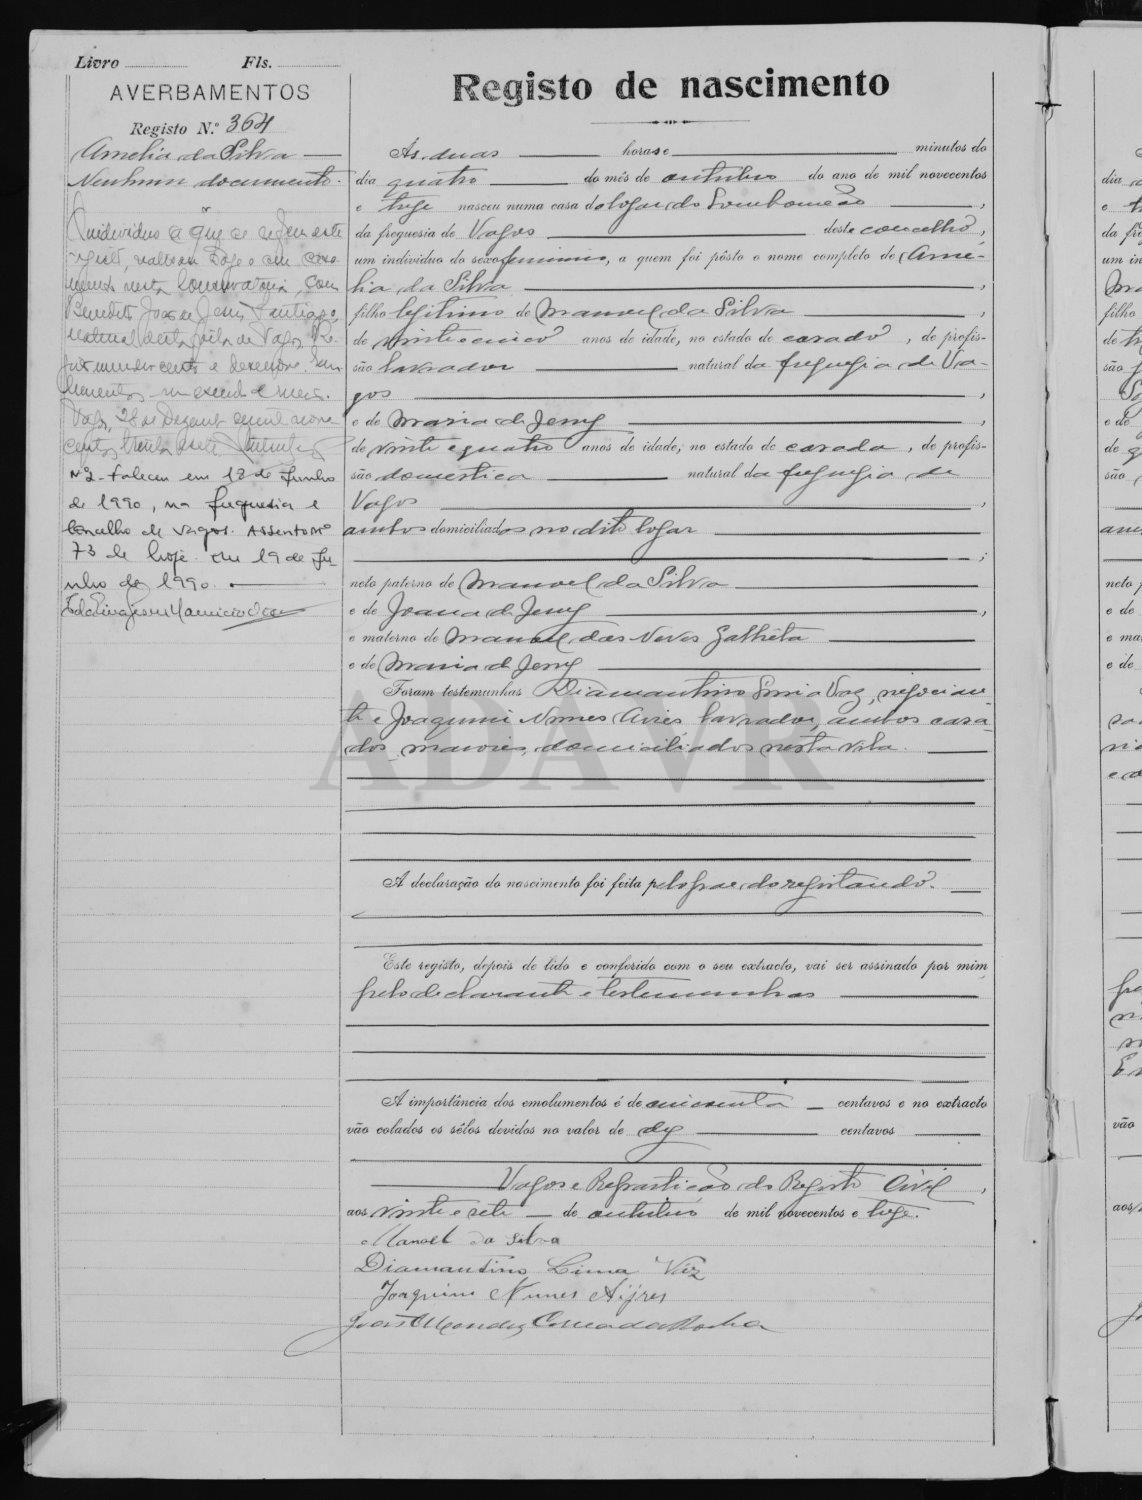 Livro Fls.
AVERBAMENTOS
Registo N.º 364
Amelia da Silva
Nenhum documento.
O individuo a que se refere este
registo, realizou hoje o seu casa-
mento nesta Conservatoria, com
Benedito João de Jesus Santiago,
natural desta vila de Vagos. Re-
gisto numero cento e dezenove.
Vagos, 28 de Dezembro de mil nove
centos trinta e sete
Nº2 - Faleceu em 18 de Junho
de 1990, na freguesia e
concelho de Vagos. Assento nº
73 de hoje. Em 19 de Ju-
nho de 1990.
Registo de nascimento
Ás duas horas e minutos do
dia quatro do mês de outubro do ano de mil novecentos
e treze nasceu numa casa do logar do Lombomeão,
da freguesia de Vagos deste concelho,
um individuo do sexo feminino, a quem foi pôsto o nome completo de Ame-
lia da Silva,
filho legitimo de Manoel da Silva,
de vinte e cinco anos de idade, no estado de casado, de profis-
são lavrador natural da freguesia de Va-
gos,
e de Maria de Jesus,
de vinte e quatro anos de idade, no estado de casada, de profis-
são domestica natural da freguesia de
Vagos,
ambos domiciliados no dito logar
;
neto paterno de Manoel da Silva
e de Joana de Jesus,
e materno de Manoel das Neves Galhéta
e de Maria de Jesus
Foram testemunhas Diamantino Lima Vaz, negocian-
te e Joaquim Nunes Aires lavrador, ambos casa-
dos, maiores, domiciliados nesta vila.
ADAVR
A declaração do nascimento foi feita pelo pae do registando.
Este registo, depois de lido e conferido com o seu extracto, vai ser assinado por mim
pelo declarante e testemunhas
A importância dos emolumentos é de cincoenta centavos e no extracto
vão colados os sêlos devidos no valor de dez centavos
Vagos e Repartição do Registo Civil,
aos vinte e sete de outubro de mil novecentos e treze.
Manoel da Silva
Diamantino Lima Vaz
Joaquim Nunes Aijres
João Mendes Correa da Rocha